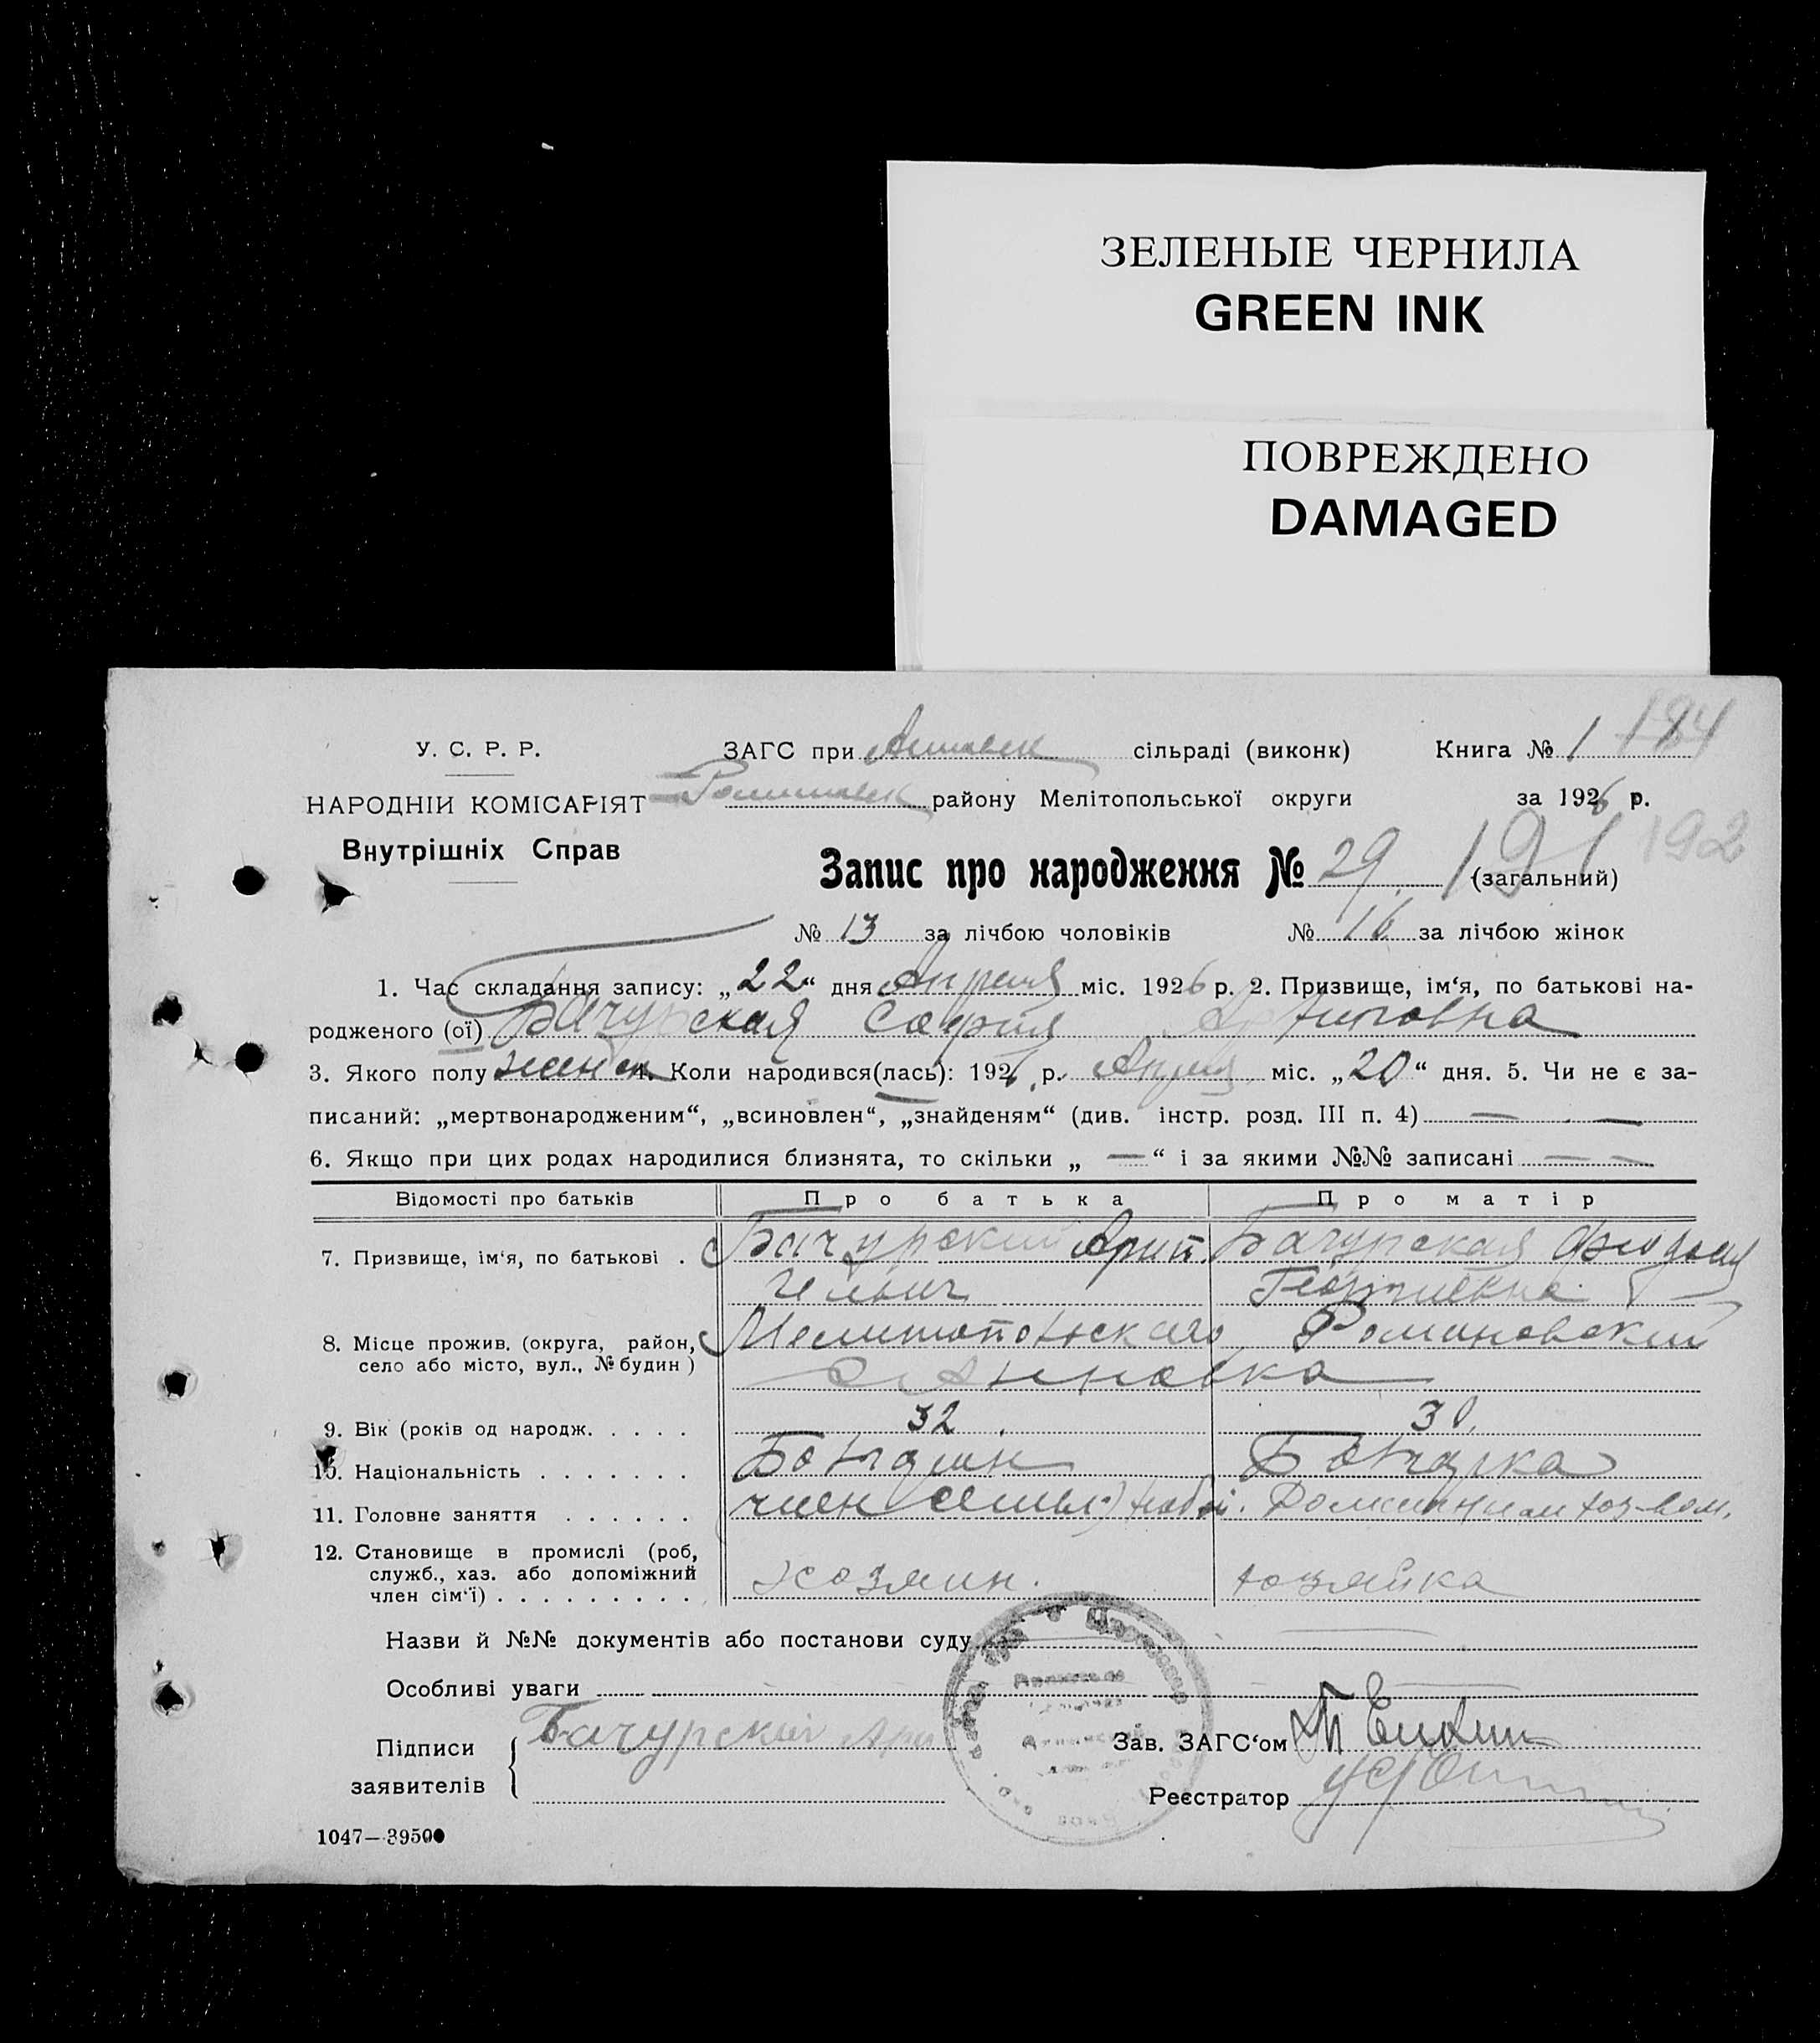 ЗЕЛЕНЫЕ ЧЕРНИЛА
GREEN INK
ПОВРЕЖДЕНО
DAMAGED
184
У. С. Р. Р. ЗАГС при сільраді (виконк) Книга № 1
НАРОДНІЙ КОМІСАРІЯТ району Мелітопольської округи за 1926 р.
Внутрішніх Справ
Запис про народження № 29. (загальний) 191 192
№ 13 за лічбою чоловіків № 16 за лічбою жінок
1. Час складання запису: „22“ дня Апреля міс. 1926 р. 2. Призвище, ім‘я, по батькові на-
родженого (ої) Бачурская София
3. Якого полу женск 4. Коли народився(лась): 1926 р. Апреля міс. „20“ дня. 5. Чи не є за-
писаний: „мертвонародженим“, „всиновлен“, „знайденям“ (див. інстр. розд. III п. 4) — —
6. Якщо при цих родах народилися близнята, то скільки „ — “ і за якими №№ записані — —
Відомості про батьків Про батька Про матір
7. Призвище, ім‘я, по батькові . Бачурский Бачурская
Ильич
8. Місце прожив. (округа, район, Мелитопольского Романовский
село або місто, вул., № будин ) с Анновка
9. Вік (років од народж. . . . . 32. 30.
10. Національність . . . . . . .
11. Головне заняття . . . . . . член семьи
12. Становище в промислі (роб,
служб., хаз. або допоміжний хозяин. хозяйка
член сім‘ї) . . . . . . . . . .
Назви й №№ документів або постанови суду
Особливі уваги
Підписи Бачурский Зав. ЗАГС‘ом
заявителів Реєстратор
1047—39500